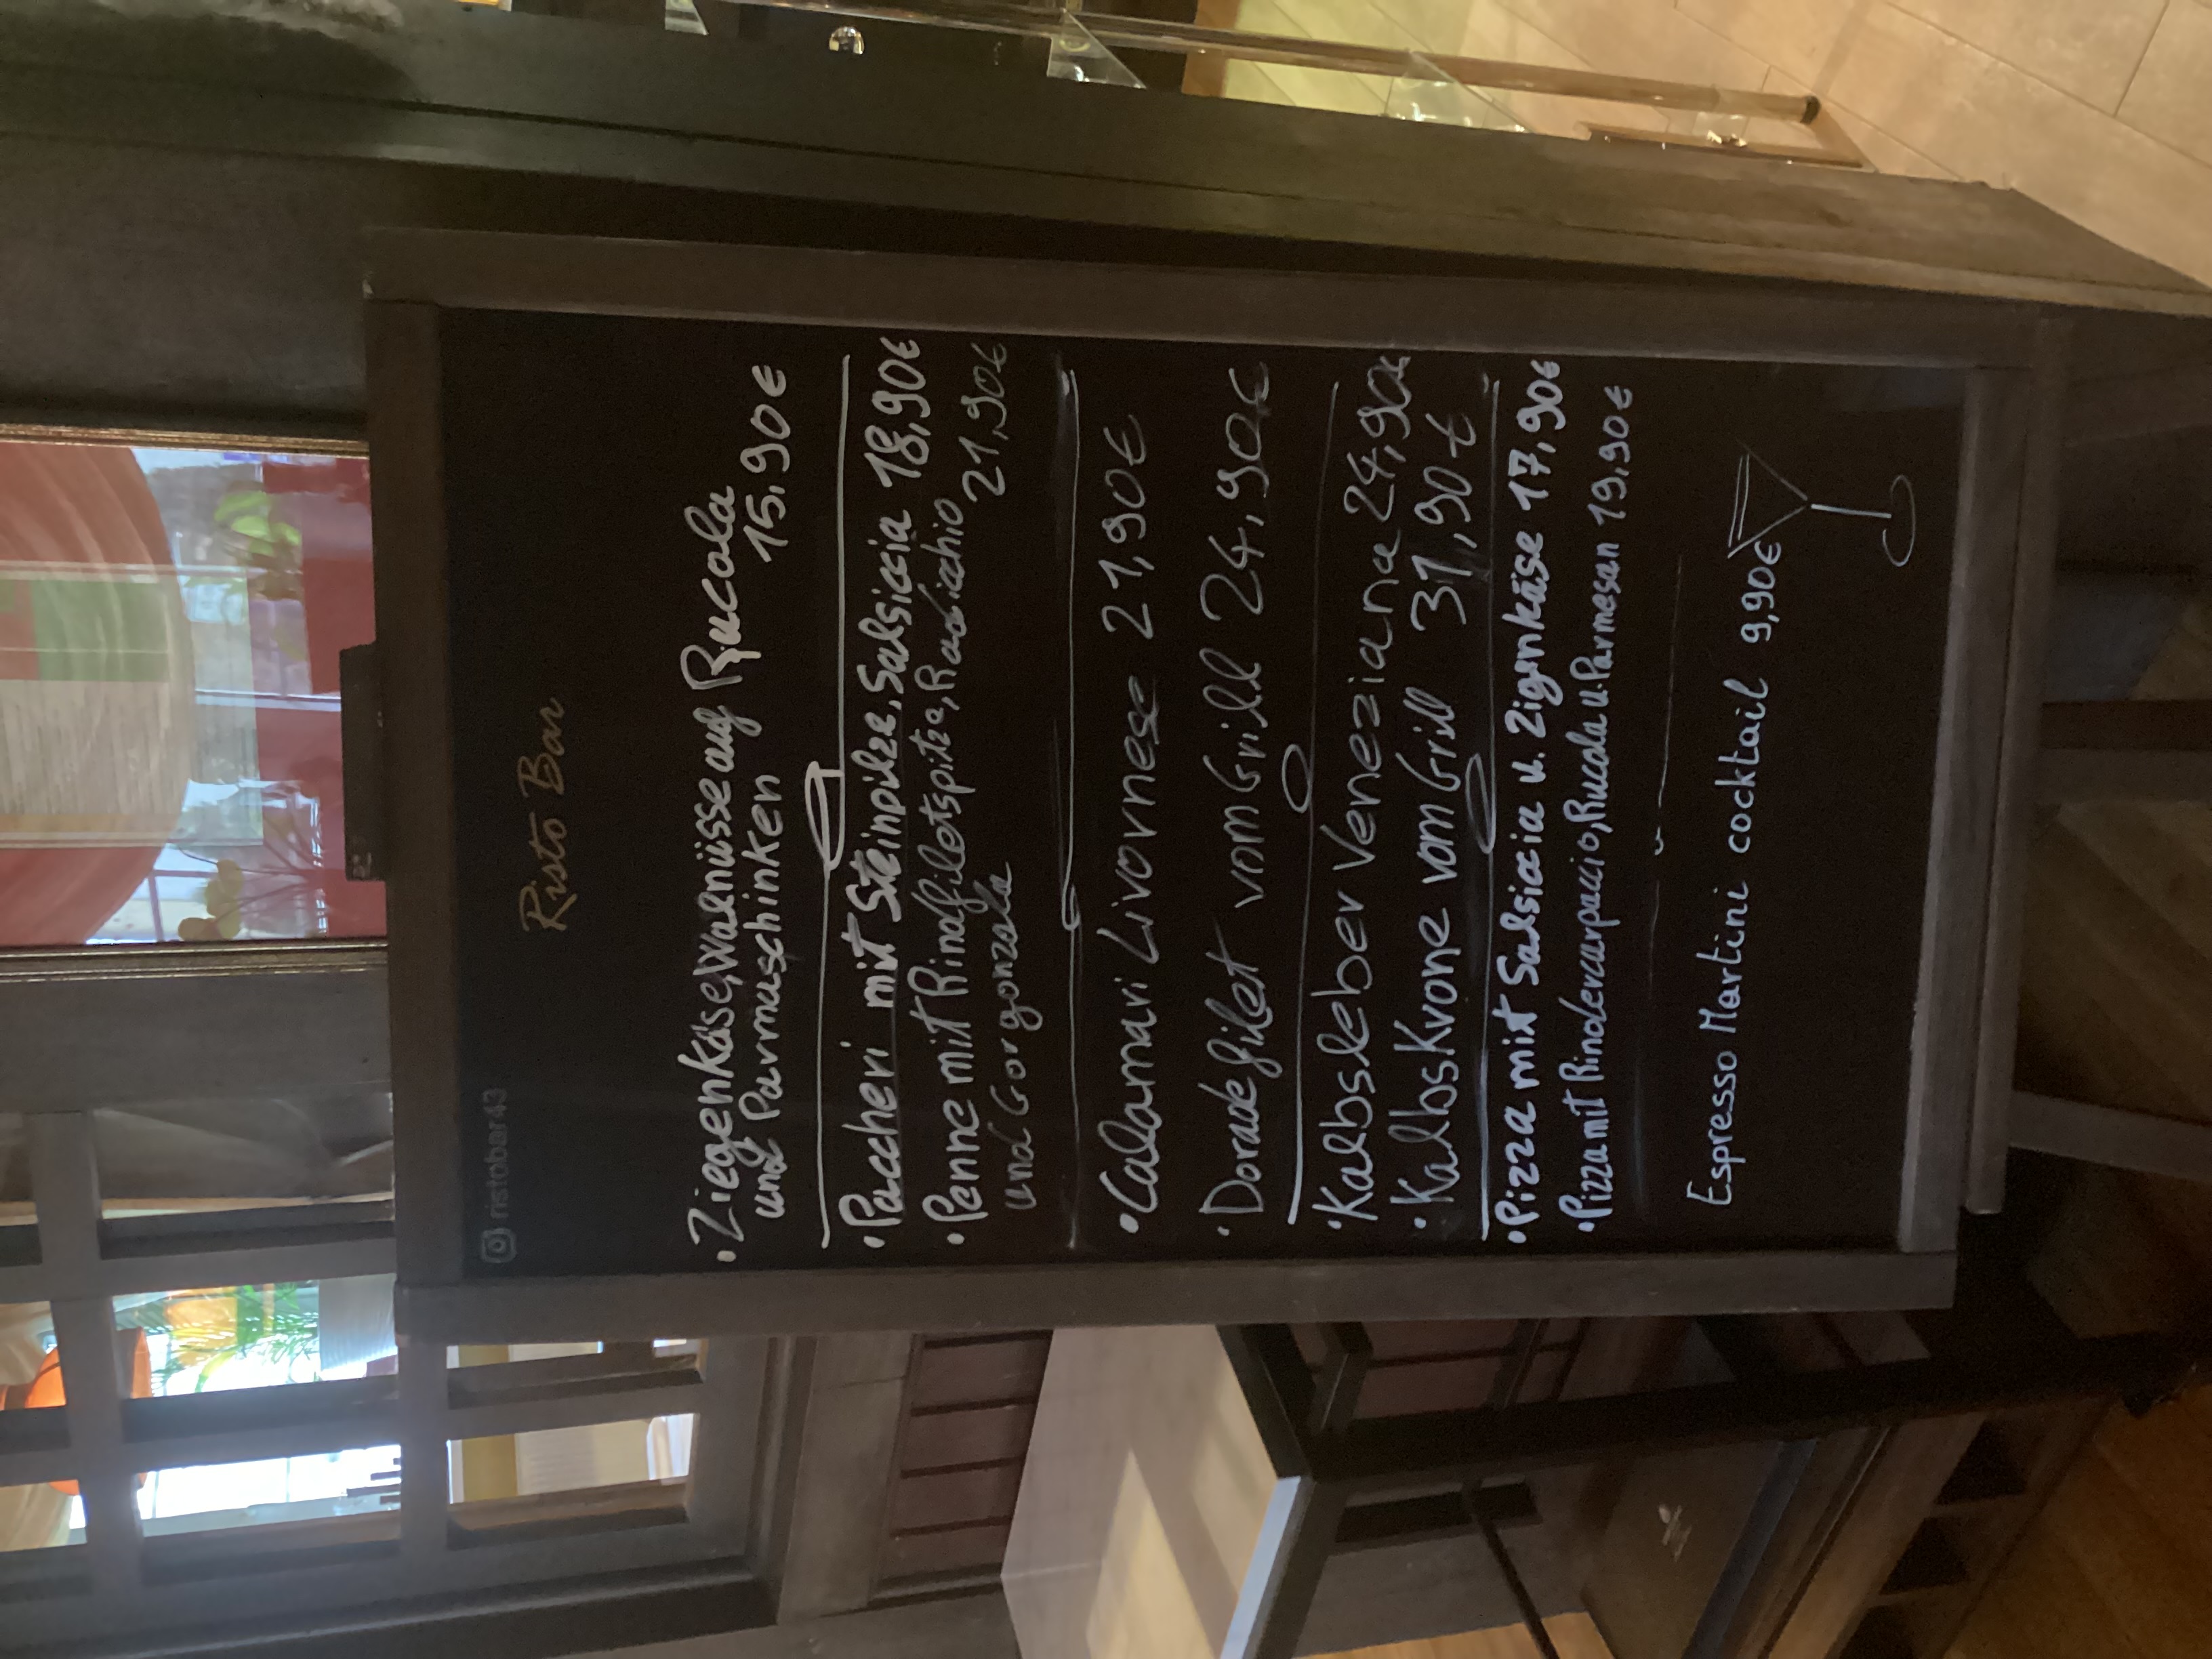 ristobar43
Risto Bar
• Ziegenkäse, Walnüsse auf Rucola
und Parmaschinken 15,90€
• Paccheri mit Steinpilze, Salsiccia 18,90€
• Penne mit Rindfiletspitze, Radicchio
und Gorgonzola 21,90€
• Calamari Livornese 21,90€
• Doradefilet vom Grill 24,90€
• Kalbsleber Veneziana 24,90€
• Kalbskrone vom Grill 31,90€
• Pizza mit Salsiccia u. Zigenkäse 17,90€
• Pizza mit Rindercarpaccio, Rucola u. Parmesan 19,90€
Espresso Martini cocktail 9,90€